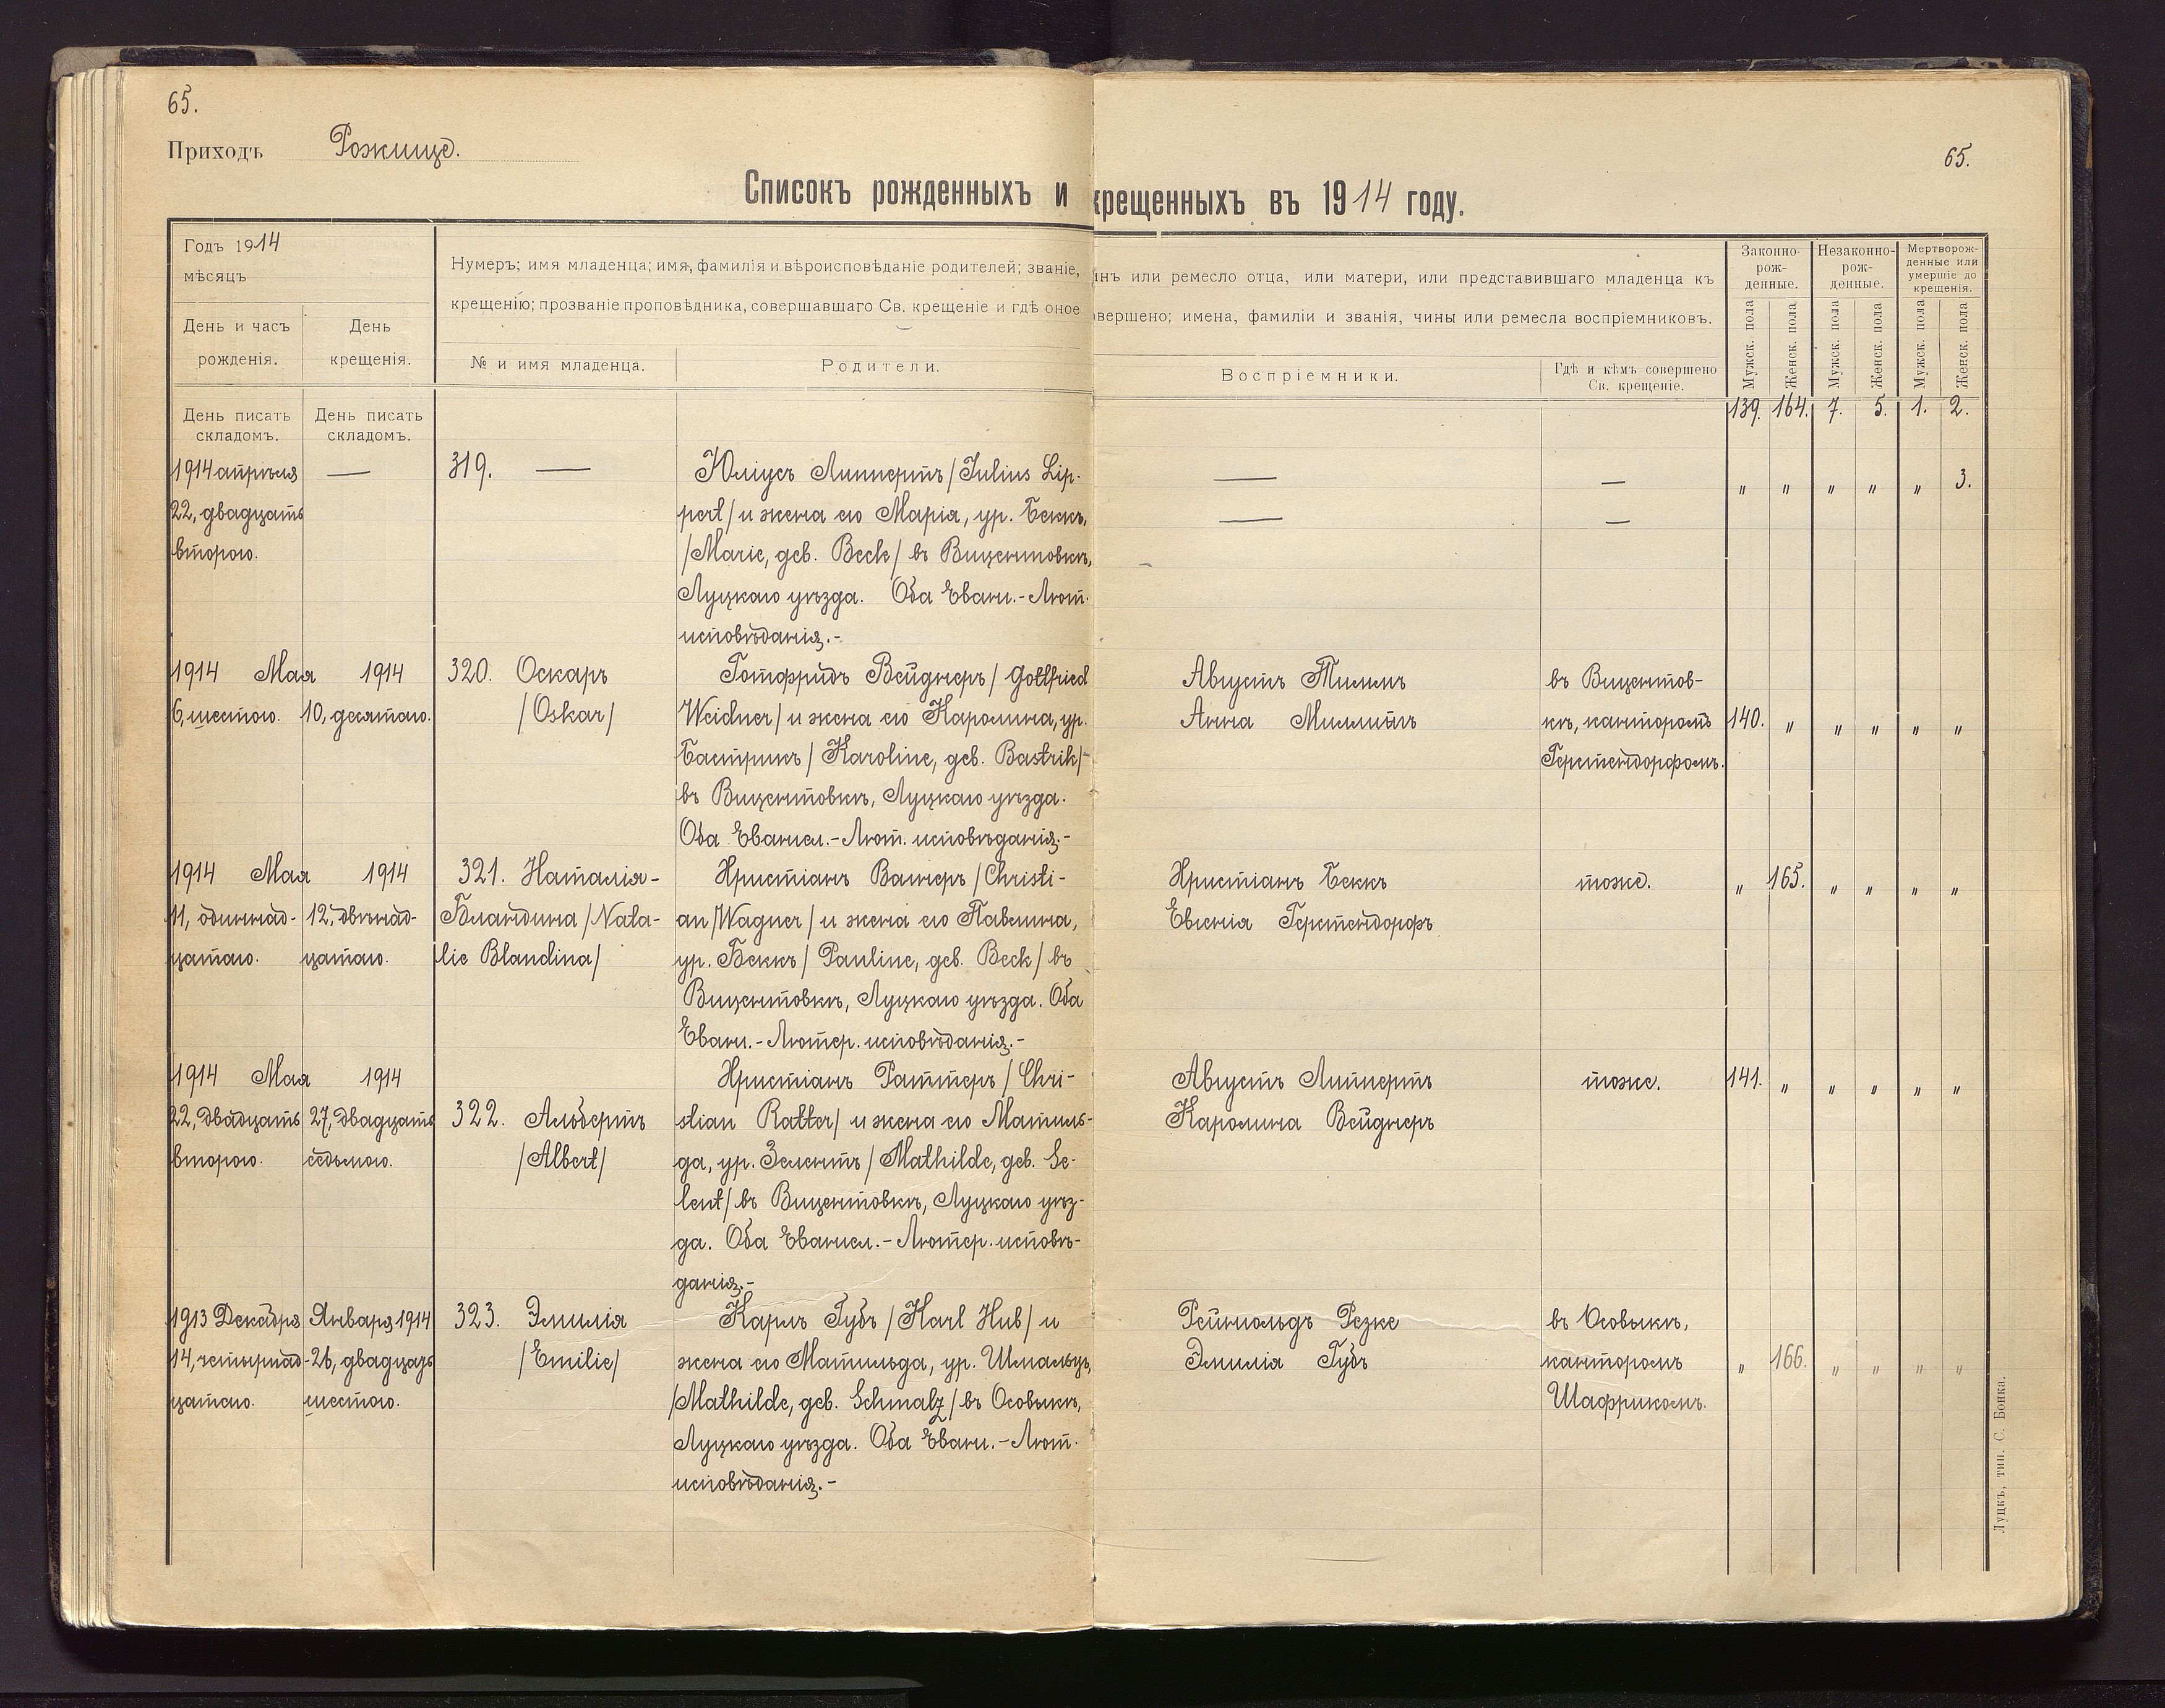 65.
Приходъ Рожище.
65.
Списокъ рожденныхъ и крещенныхъ въ 1914 году.
Годъ 1914
мѣсяцъ
День и часъ рожденія.
День крещенія.
Нумеръ; имя младенца; имя, фамилія и вѣроисповѣданіе родителей; званіе, чинъ или ремесло отца, или матери, или представившаго младенца къ
крещенію; прозваніе проповѣдника, совершавшаго Св. крещеніе и гдѣ оное совершено; имена, фамиліи и званія, чины или ремесла воспріемниковъ.
№ и имя младенца.
Родители.
Воспріемники.
Гдѣ и кѣмъ совершено
Св. крещеніе.
Законно-
рож-
денные.
Незаконно-
рож-
денные.
Мертворож-
денные или
умершіе до
крещенія.
Мужск. пола
Женск. пола
Мужск. пола
Женск. пола
Мужск. пола
Женск. пола
День писать
складомъ.
День писать
складомъ.
139. 164. 7. 5. 1. 2.
1914 апрѣля
22, двадцать
второго.
—
319. —
Юліусъ Липпертъ /Julius Lip-
pert/ и жена его Марія, ур. Беккъ,
/Marie, geb. Beck/ въ Вицентовкѣ,
Луцкаго уѣзда. Оба Еванг.-Лют.
исповѣданія.-
— —
— —
" " " " " 3.
1914 Мая
6, шестого.
1914
10, десятаго.
320. Оскаръ
/Oskar/
Готфридъ Вейднеръ / Gottfried
Weidner/ и жена его Каролина, ур.
Бастрикъ / Karoline, geb. Bastrik/-
въ Вицентовкѣ, Луцкаго уѣзда.
Оба Евангел.-Лют. исповѣданія.-
Августъ Тиммъ
Анна Миллитъ
въ Вицентов-
кѣ, канторомъ
Герстендорфомъ.
140. " " " " "
1914 Мая
11, одиннад-
цатаго.
1914
12, двѣнад-
цатаго.
321. Наталія-
Бландина /Nata-
lie Blandina/
Христіанъ Вагнеръ /Christi-
an /Wagner / и жена его Павлина,
ур. Беккъ / Pauline, geb. Beck / въ
Вицентовкѣ, Луцкаго уѣзда. Оба
Еванг.-Лютер. исповѣданія.-
Христіанъ Беккъ
Евгенія Герстендорфъ
тоже.
" 165. " " " "
1914 Мая
22, двадцать
второго.
1914
27, двадцать
седьмого.
322. Альбертъ
/Albert/
Христіанъ Раттеръ / Chri-
stian Ratter/ и жена его Матиль-
да, ур. Зелентъ / Mathilde, geb. Se-
lent/ въ Вицентовкѣ, Луцкаго уѣз-
да. Оба Евангел.-Лютер. исповѣ-
данія.-
Августъ Липпертъ
Каролина Вейднеръ
тоже.
141. " " " " "
1913 Декабря
14, четырнад-
цатаго.
Января 1914
26, двадцать
шестого.
323. Эмилія
/Emilie/
Карлъ Губъ /Karl Hub/ и
жена его Матильда, ур. Шмальцъ,
/Mathilde, geb. Schmalz / въ Осовыкѣ,
Луцкаго уѣзда. Оба Еванг.-Лют.
исповѣданія.-
Рейнгольдъ Резке
Эмилія Губъ
въ Осовыкѣ,
канторомъ
Шафрикомъ.
" 166. " " " "
Луцкъ, тип. С. Бонка.